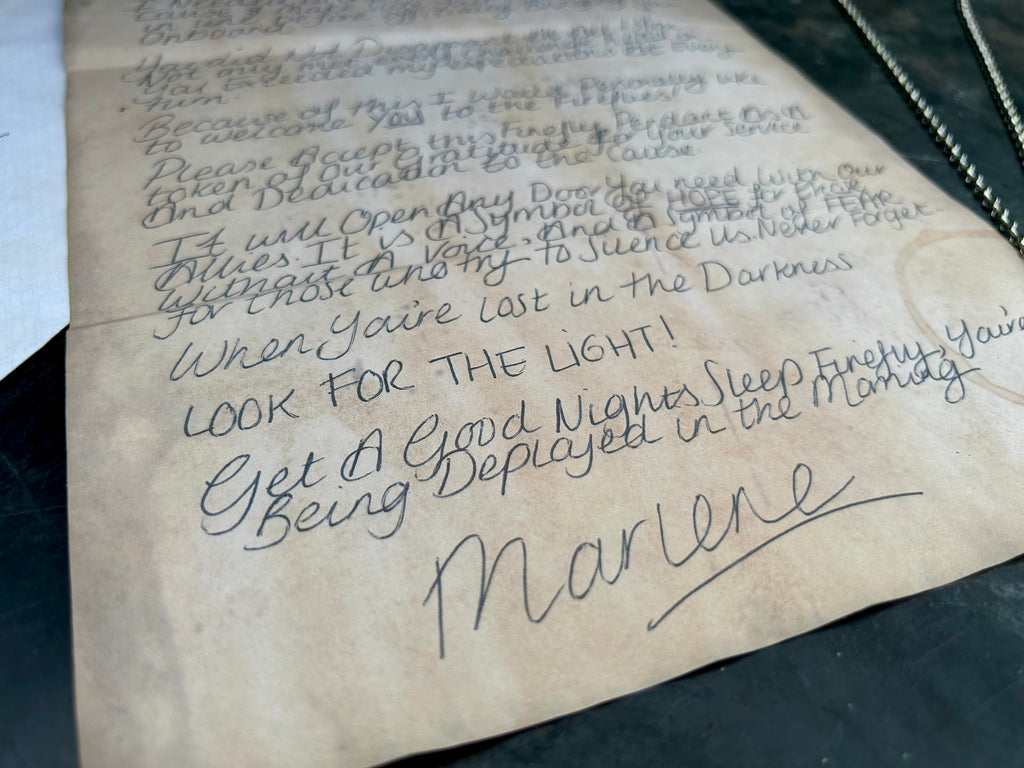 Onboard
You did Not
You Exceeded my every
Turn
Because of this I would Personally like
to welcome You to the Fireflies!
Please Accept this Firefly Pendant As A
token of our Gratitude for Your Service
And Dedication to the Cause
It will Open Any Door You need with Our
Allies. It is A Symbol of HOPE for those
without A Voice, And A Symbol of FEAR
for those who try to Silence Us. Never Forget
When You're Lost in the Darkness
LOOK FOR THE LIGHT!
Get A Good Nights Sleep Firefly, You're
Being Deployed in the Morning
Marlene